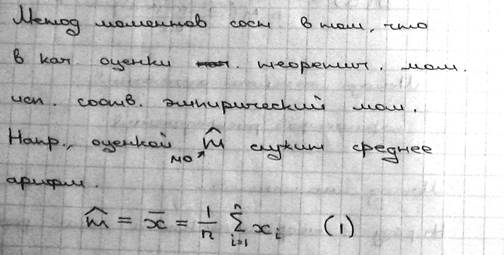 Метод моментов сост. в том, что
в кач. оценки теоретич. мом.
исп. соотв. эмпирический мом.
Напр., оценкой m̂ служит среднее
МО
арифм.
m̂ = x̄ = 1/n ∑ᵢ₌₁ⁿ xᵢ (1)